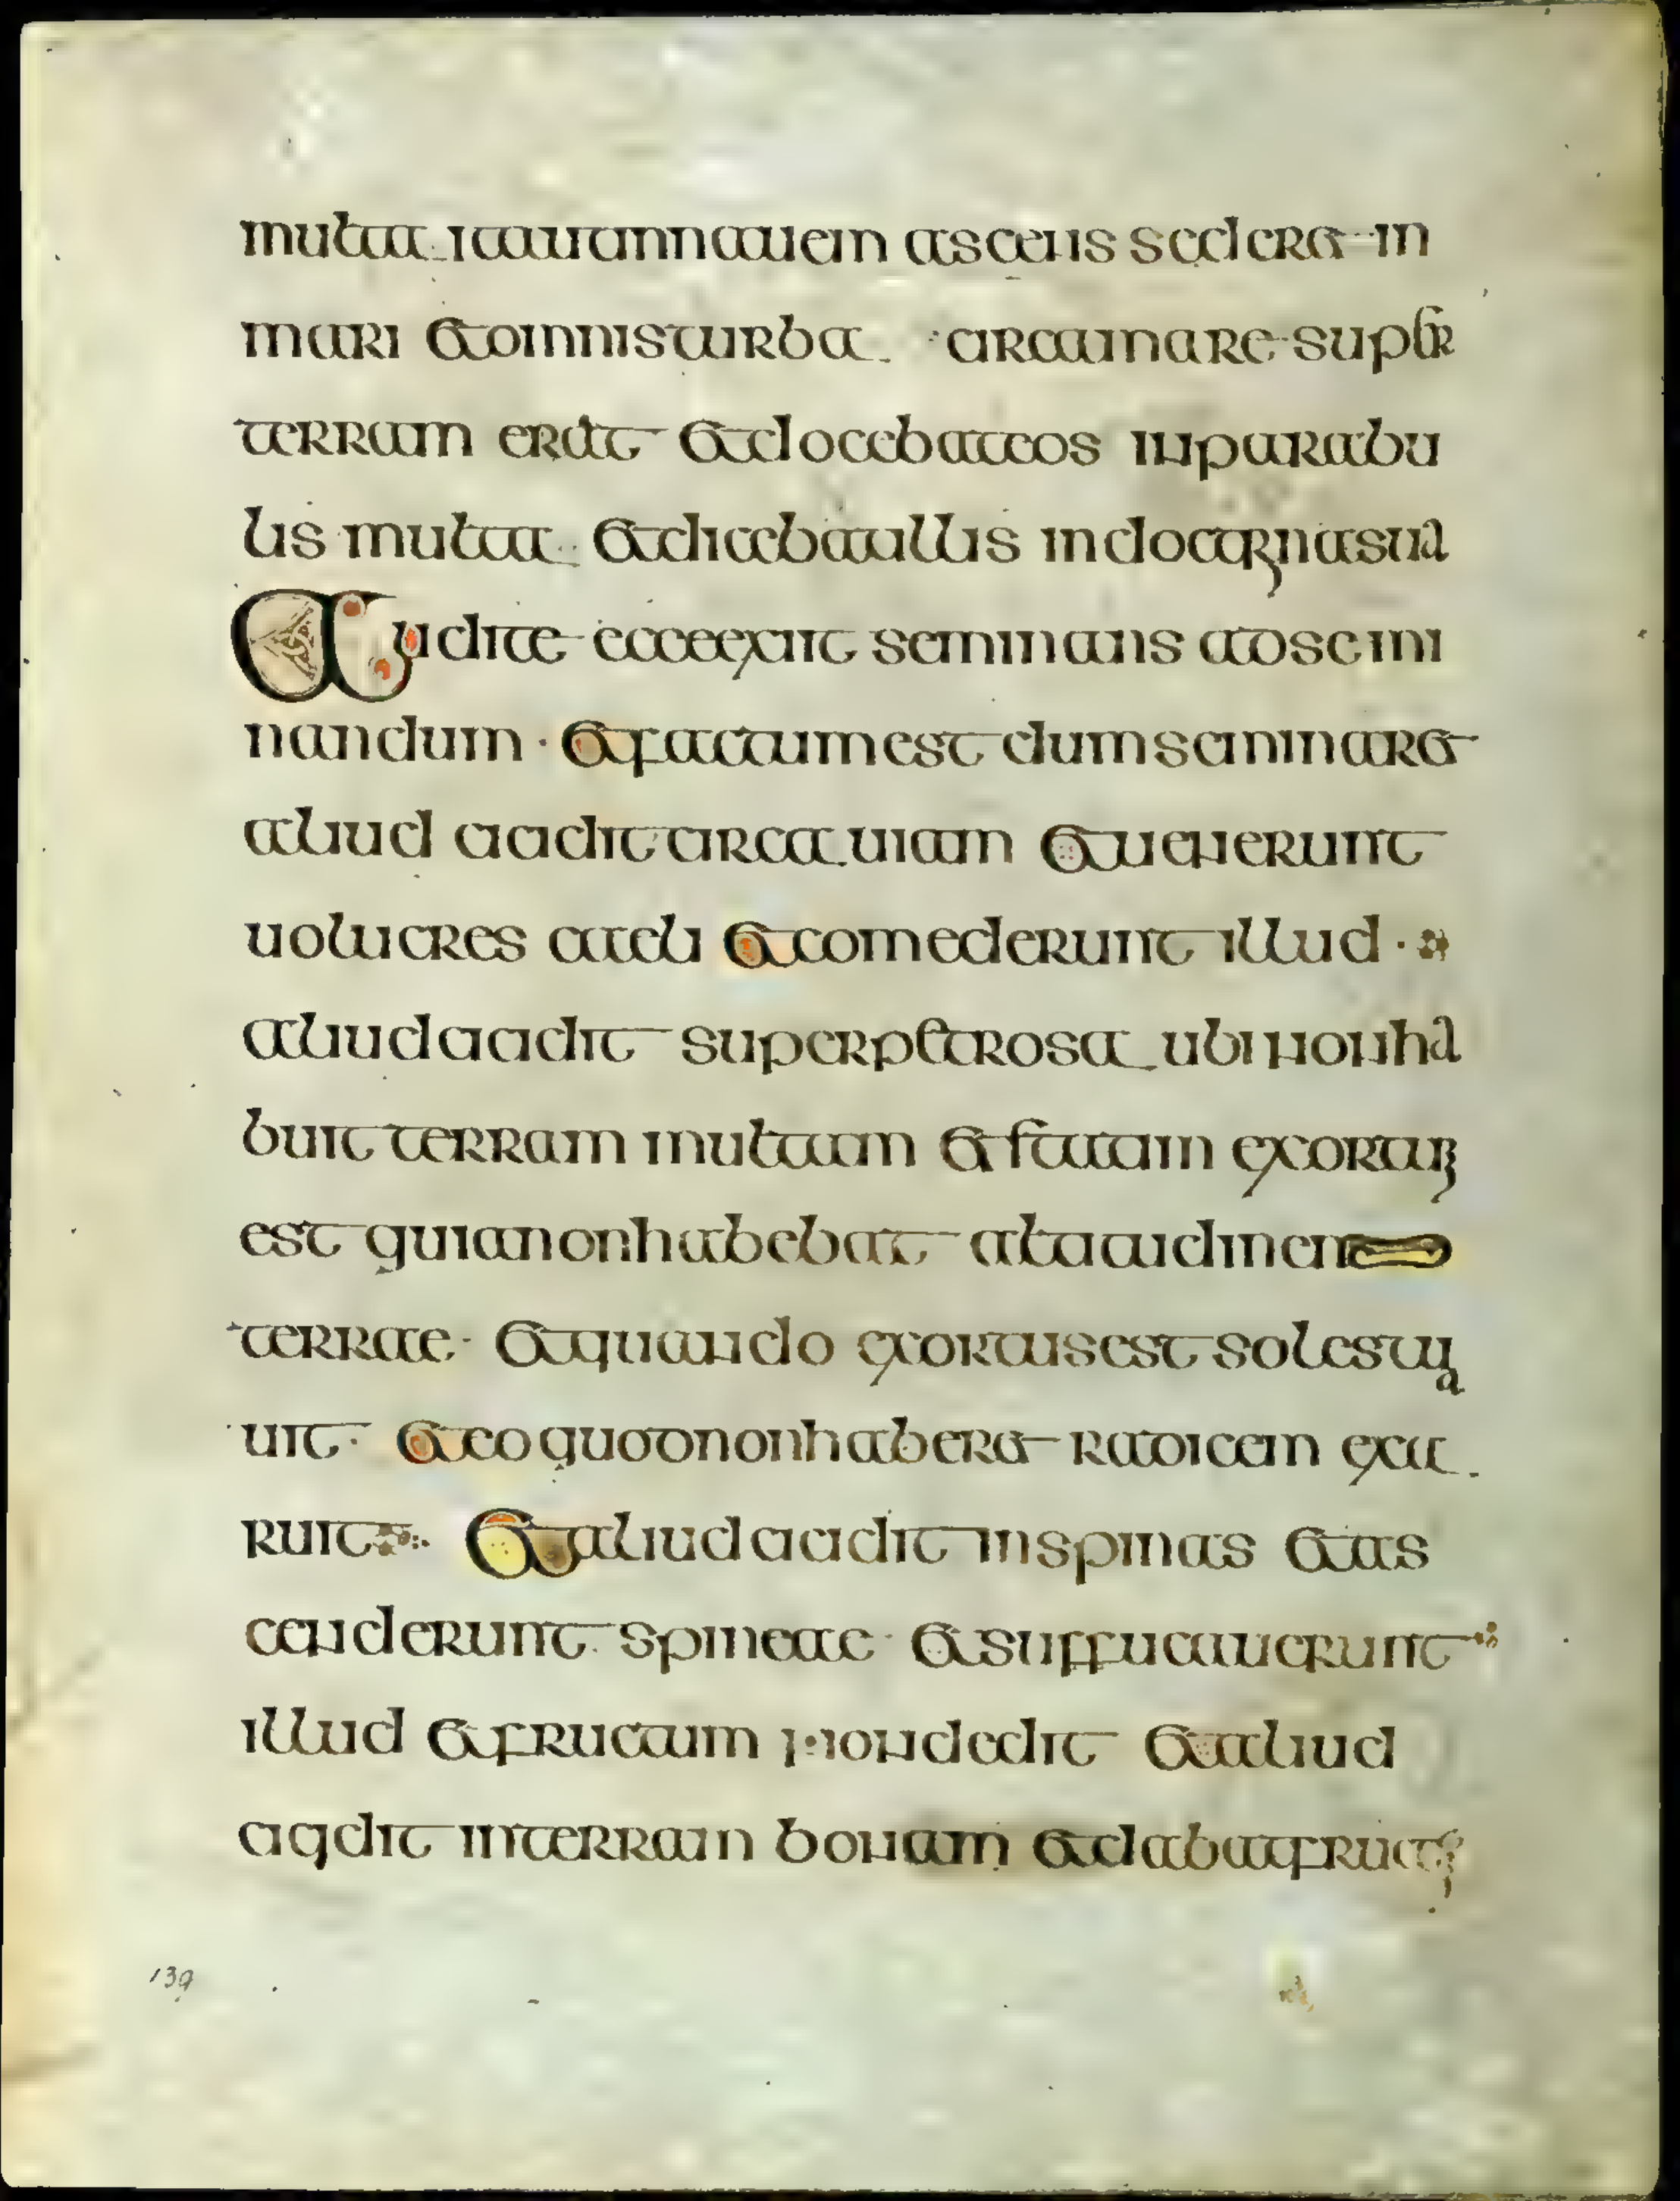 multa ita ut in nauem ascendens sederet in
mari et omnis turba circa mare super
terram erat et docebat eos in parabu
lis multa et dicebat illis in doctrina sua
Audite ecce exiit seminans ad semi
nandum · et factum est dum seminaret
aliud cadit circa uiam et uenerunt
uolucres caeli et comederunt illud ·
aliud cadit super petrosa ubi non ha
buit terram multam et statim exortum
est quia non habebat altitudinem
terrae · et quando exortus est sol estua
uit · et eo quod non haberet radicem exa
ruit et aliud cadit in spinas et as
cenderunt spineae et suffucauerunt
illud et fructum non dedit et aliud
cadit in terram bonam et dabat fructum
139